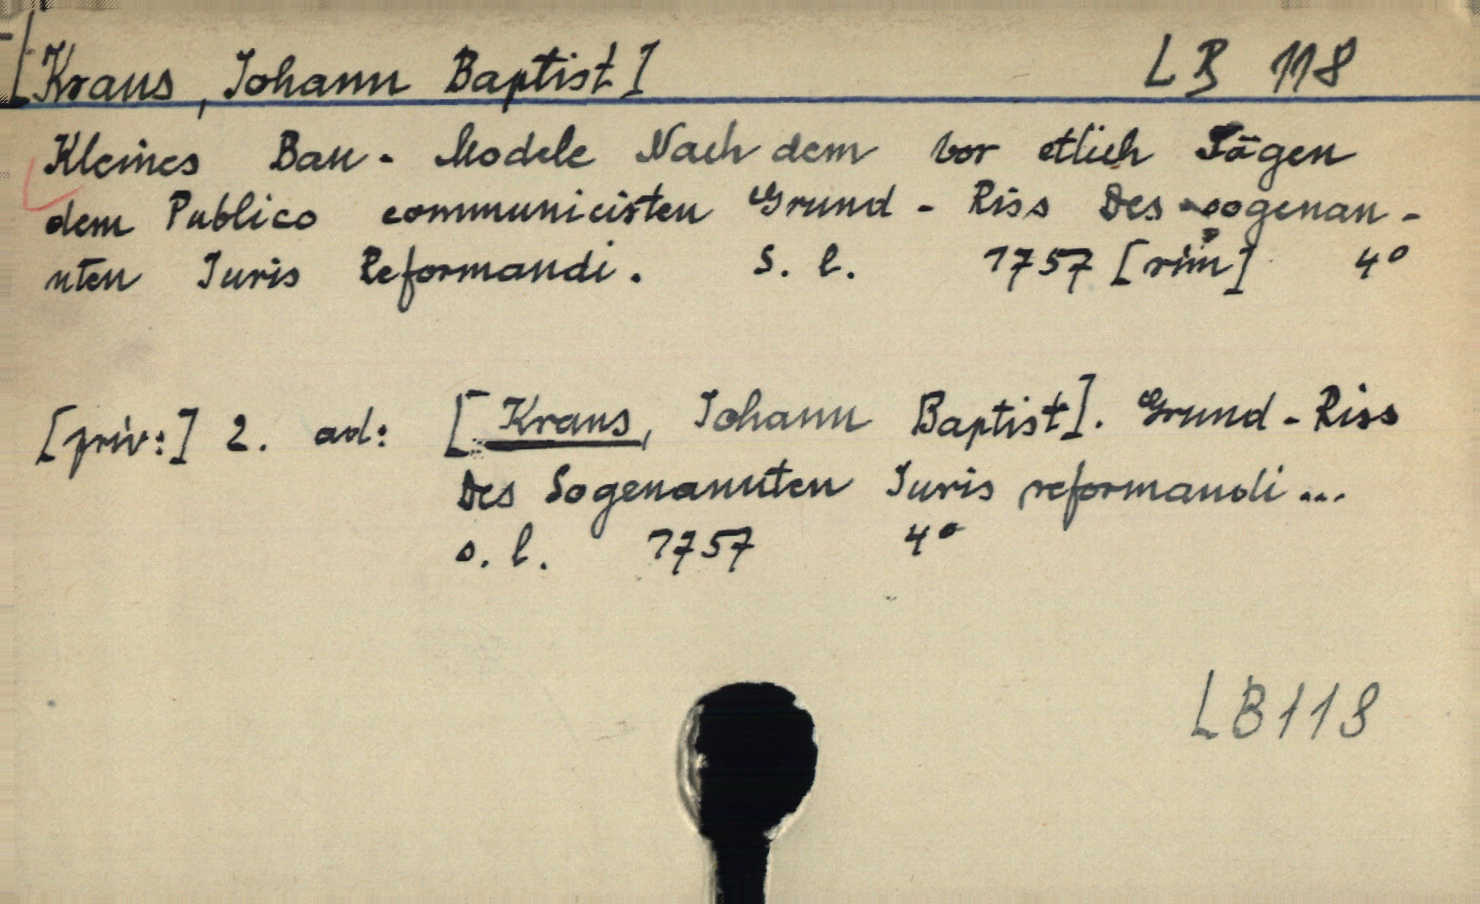 [Kraus, Johann Baptist] LB 118
Kleines Bau-Modele Nach dem vor etlich Tägen
dem Publico communicirten Grund-Riss Des sogenan-
nten Juris Reformandi. S. l. 1757 [rim] 4°
[priv:] 2. ad: [Kraus, Johann Baptist]. Grund-Riss
Des Sogenannten Juris reformandi...
s. l. 1757 4°
LB118